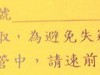 號
取,為避免失
管中,請速前